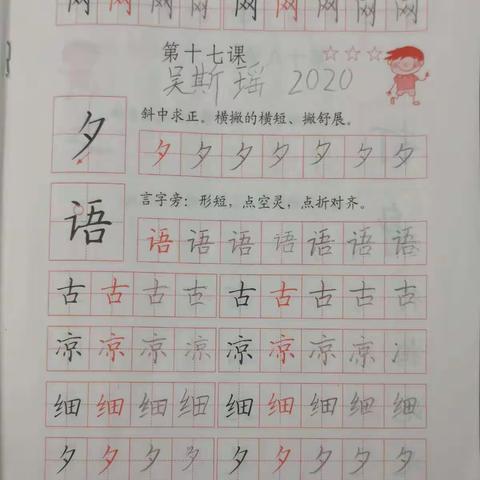 网网网网网网网网
第十七课
吴斯瑶 2020
斜中求正。横撇的横短、撇舒展。
夕夕夕夕夕夕夕夕
言字旁：形短，点空灵，点折对齐。
语语语语语语语语
古古古古古古古古
凉凉凉凉凉凉凉
细细细细细细细细
夕夕夕夕夕夕夕夕